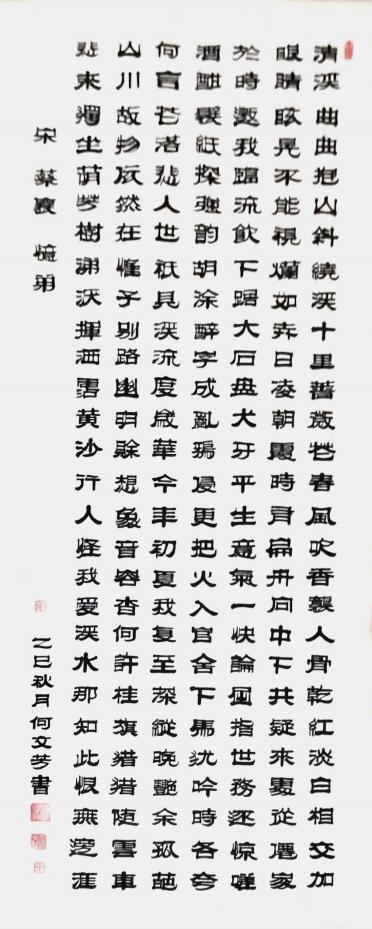 清溪曲曲抱山斜繞溪十里薔薇花春風吹香襲人骨乾紅淡白相交加
眼睛眩晃不能視爛如卉日凌朝霞時君扁舟向中下共疑來處從僊家
於時邀我臨流飲下踞大石盘犬牙平生意氣一快論直指世務逐惊嗟
酒酣裂紙探強韵胡涂醉字成亂鴉侵更把火入官舍下馬犹吟時各夸
何言芒洛悲人世祇見溪流度歲華今年初夏我复至深叢晚艷余孤葩
山川故物依然在惟子别路幽明賒想象音容杳何許桂旗猎猎随雲車
悲來獨坐荫芳樹涕泆揮洒霑黄沙行人怪我愛溪水那知此恨無邊涯
宋 蔡襄 憶弟
乙巳秋月何文芳書